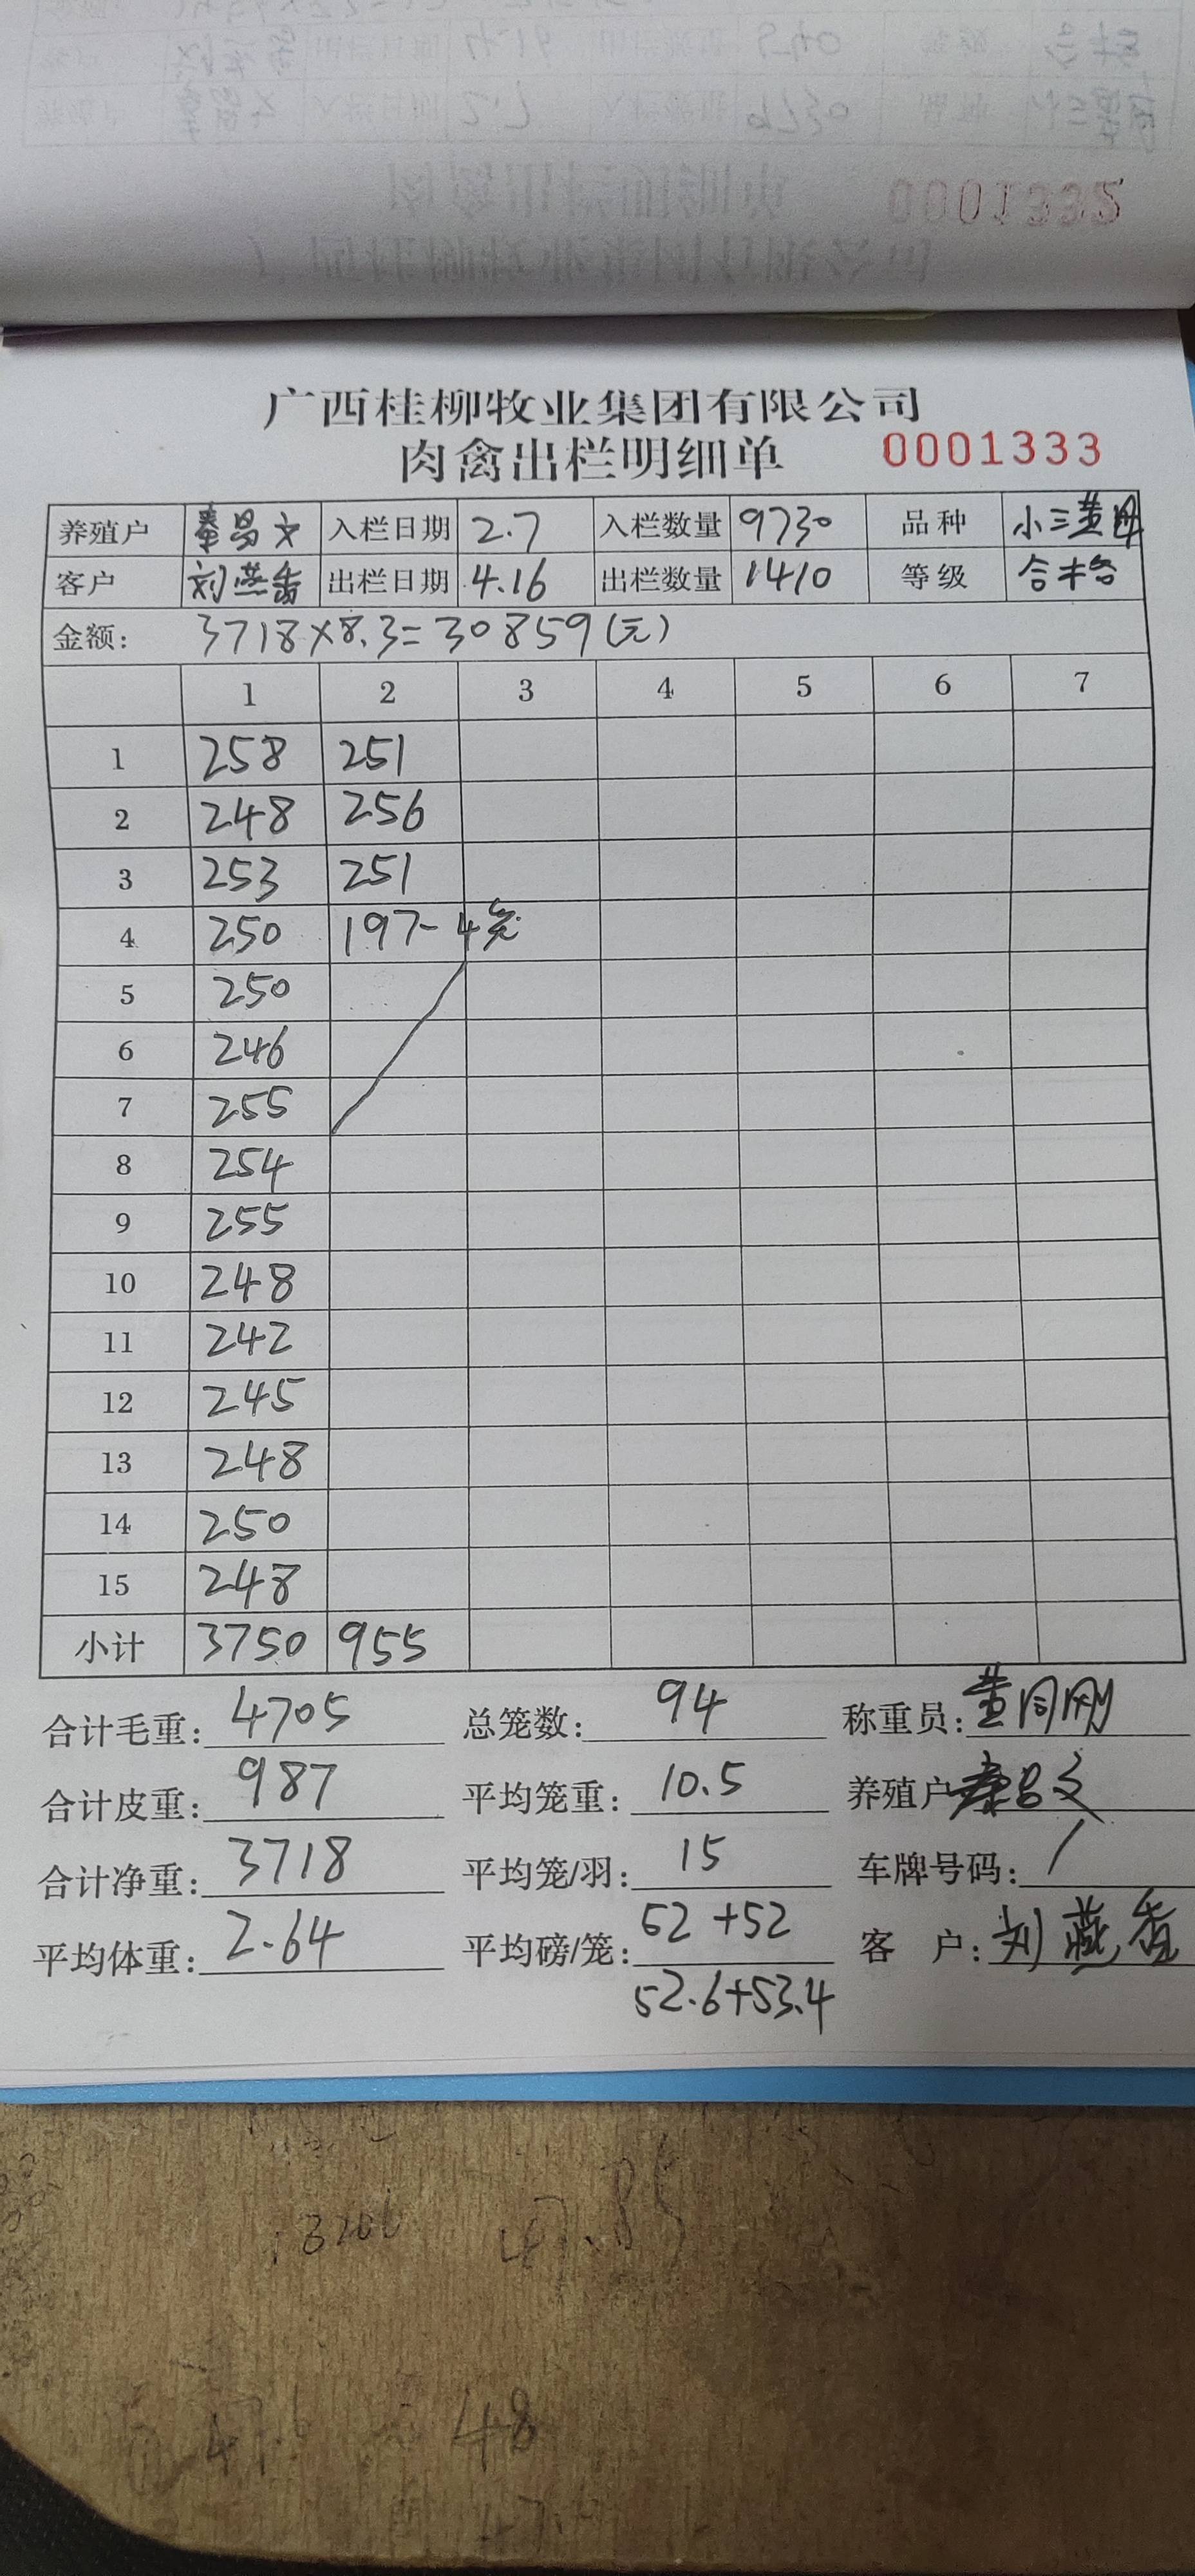 0001332
广西桂柳牧业集团有限公司
肉禽出栏明细单 0001333
养殖户 秦昌文 入栏日期 2.7 入栏数量 9730 品种 小三黄母
客户 刘燕香 出栏日期 4.16 出栏数量 1410 等级 合格
金额: 3718×8.3=30859(元)
1 2 3 4 5 6 7
1 258 251
2 248 256
3 253 251
4 250 197-4笼
5 250
6 246
7 255
8 254
9 255
10 248
11 242
12 245
13 248
14 250
15 248
小计 3750 955
合计毛重: 4705 总笼数: 94 称重员: 黄同刚
合计皮重: 987 平均笼重: 10.5 养殖户 秦昌文
合计净重: 3718 平均笼/羽: 15 车牌号码: /
平均体重: 2.64 平均磅/笼: 52+52 客 户: 刘燕香
52.6+53.4
47.85
48